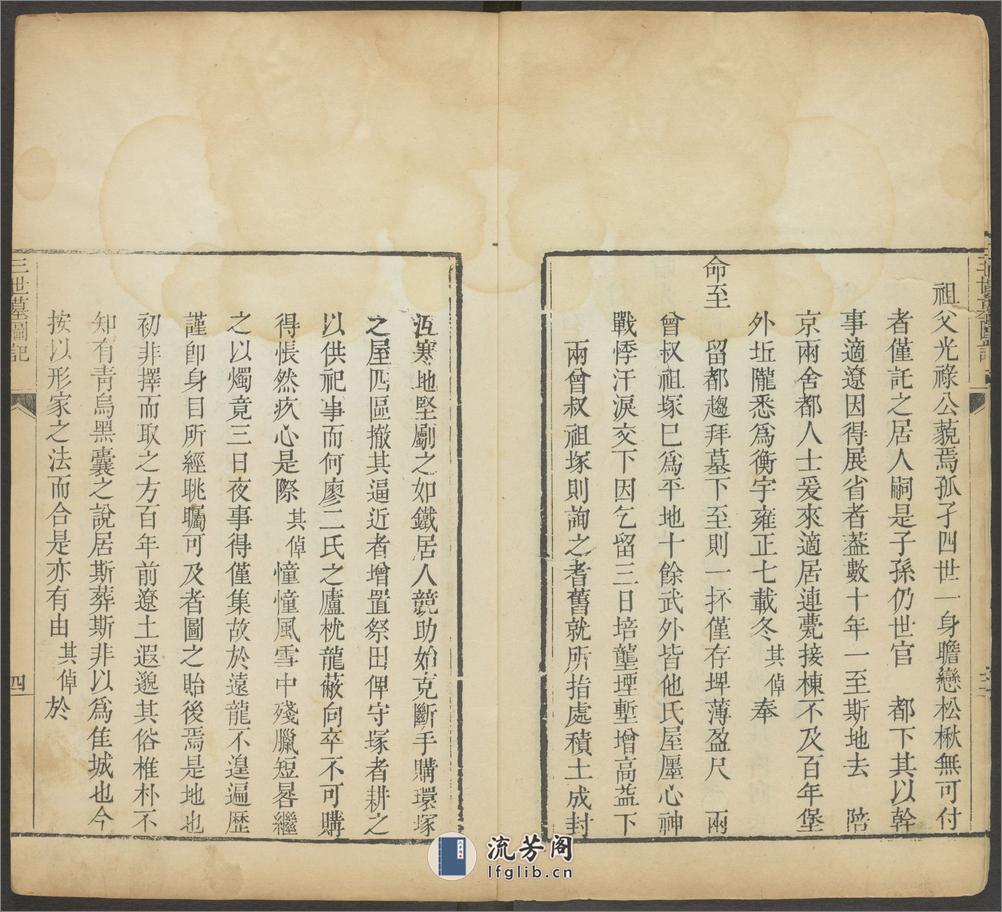 祖父光祿公藐焉孤孑四世一身瞻戀松楸無可付
者僅託之居人嗣是子孫仍世官　都下其以幹
事適遼因得展省者葢數十年一至斯地去　陪
京兩舍都人士爰來適居連甍接棟不及百年堡
外坵隴悉爲衡宇雍正七載冬其倬奉
命至　留都趨拜墓下至則一抔僅存埤薄盈尺　兩
曾叔祖塚巳爲平地十餘武外皆他氏屋廛心神
戰悸汗淚交下因乞留三日培壟堙塹增高益下
兩曾叔祖塚則詢之耆舊就所指處積土成封
沍寒地堅劚之如鐵居人競助始克斷手購環塚
之屋四區撤其逼近者增置祭田俾守塚者耕之
以供祀事而何廖二氏之廬枕龍蔽向卒不可購
得悵然疚心是際其倬憧憧風雪中殘臘短晷繼
之以燭竟三日夜事得僅集故於遠龍不遑遍歷
謹卽身目所經眺矚可及者圖之貽後焉是地也
初非擇而取之方百年前遼土遐邈其俗椎朴不
知有青烏黑囊之說居斯葬斯非以爲隹城也今
按以形家之法而合是亦有由其倬於
三世墓圖記
四
流芳阁
lfglib.cn